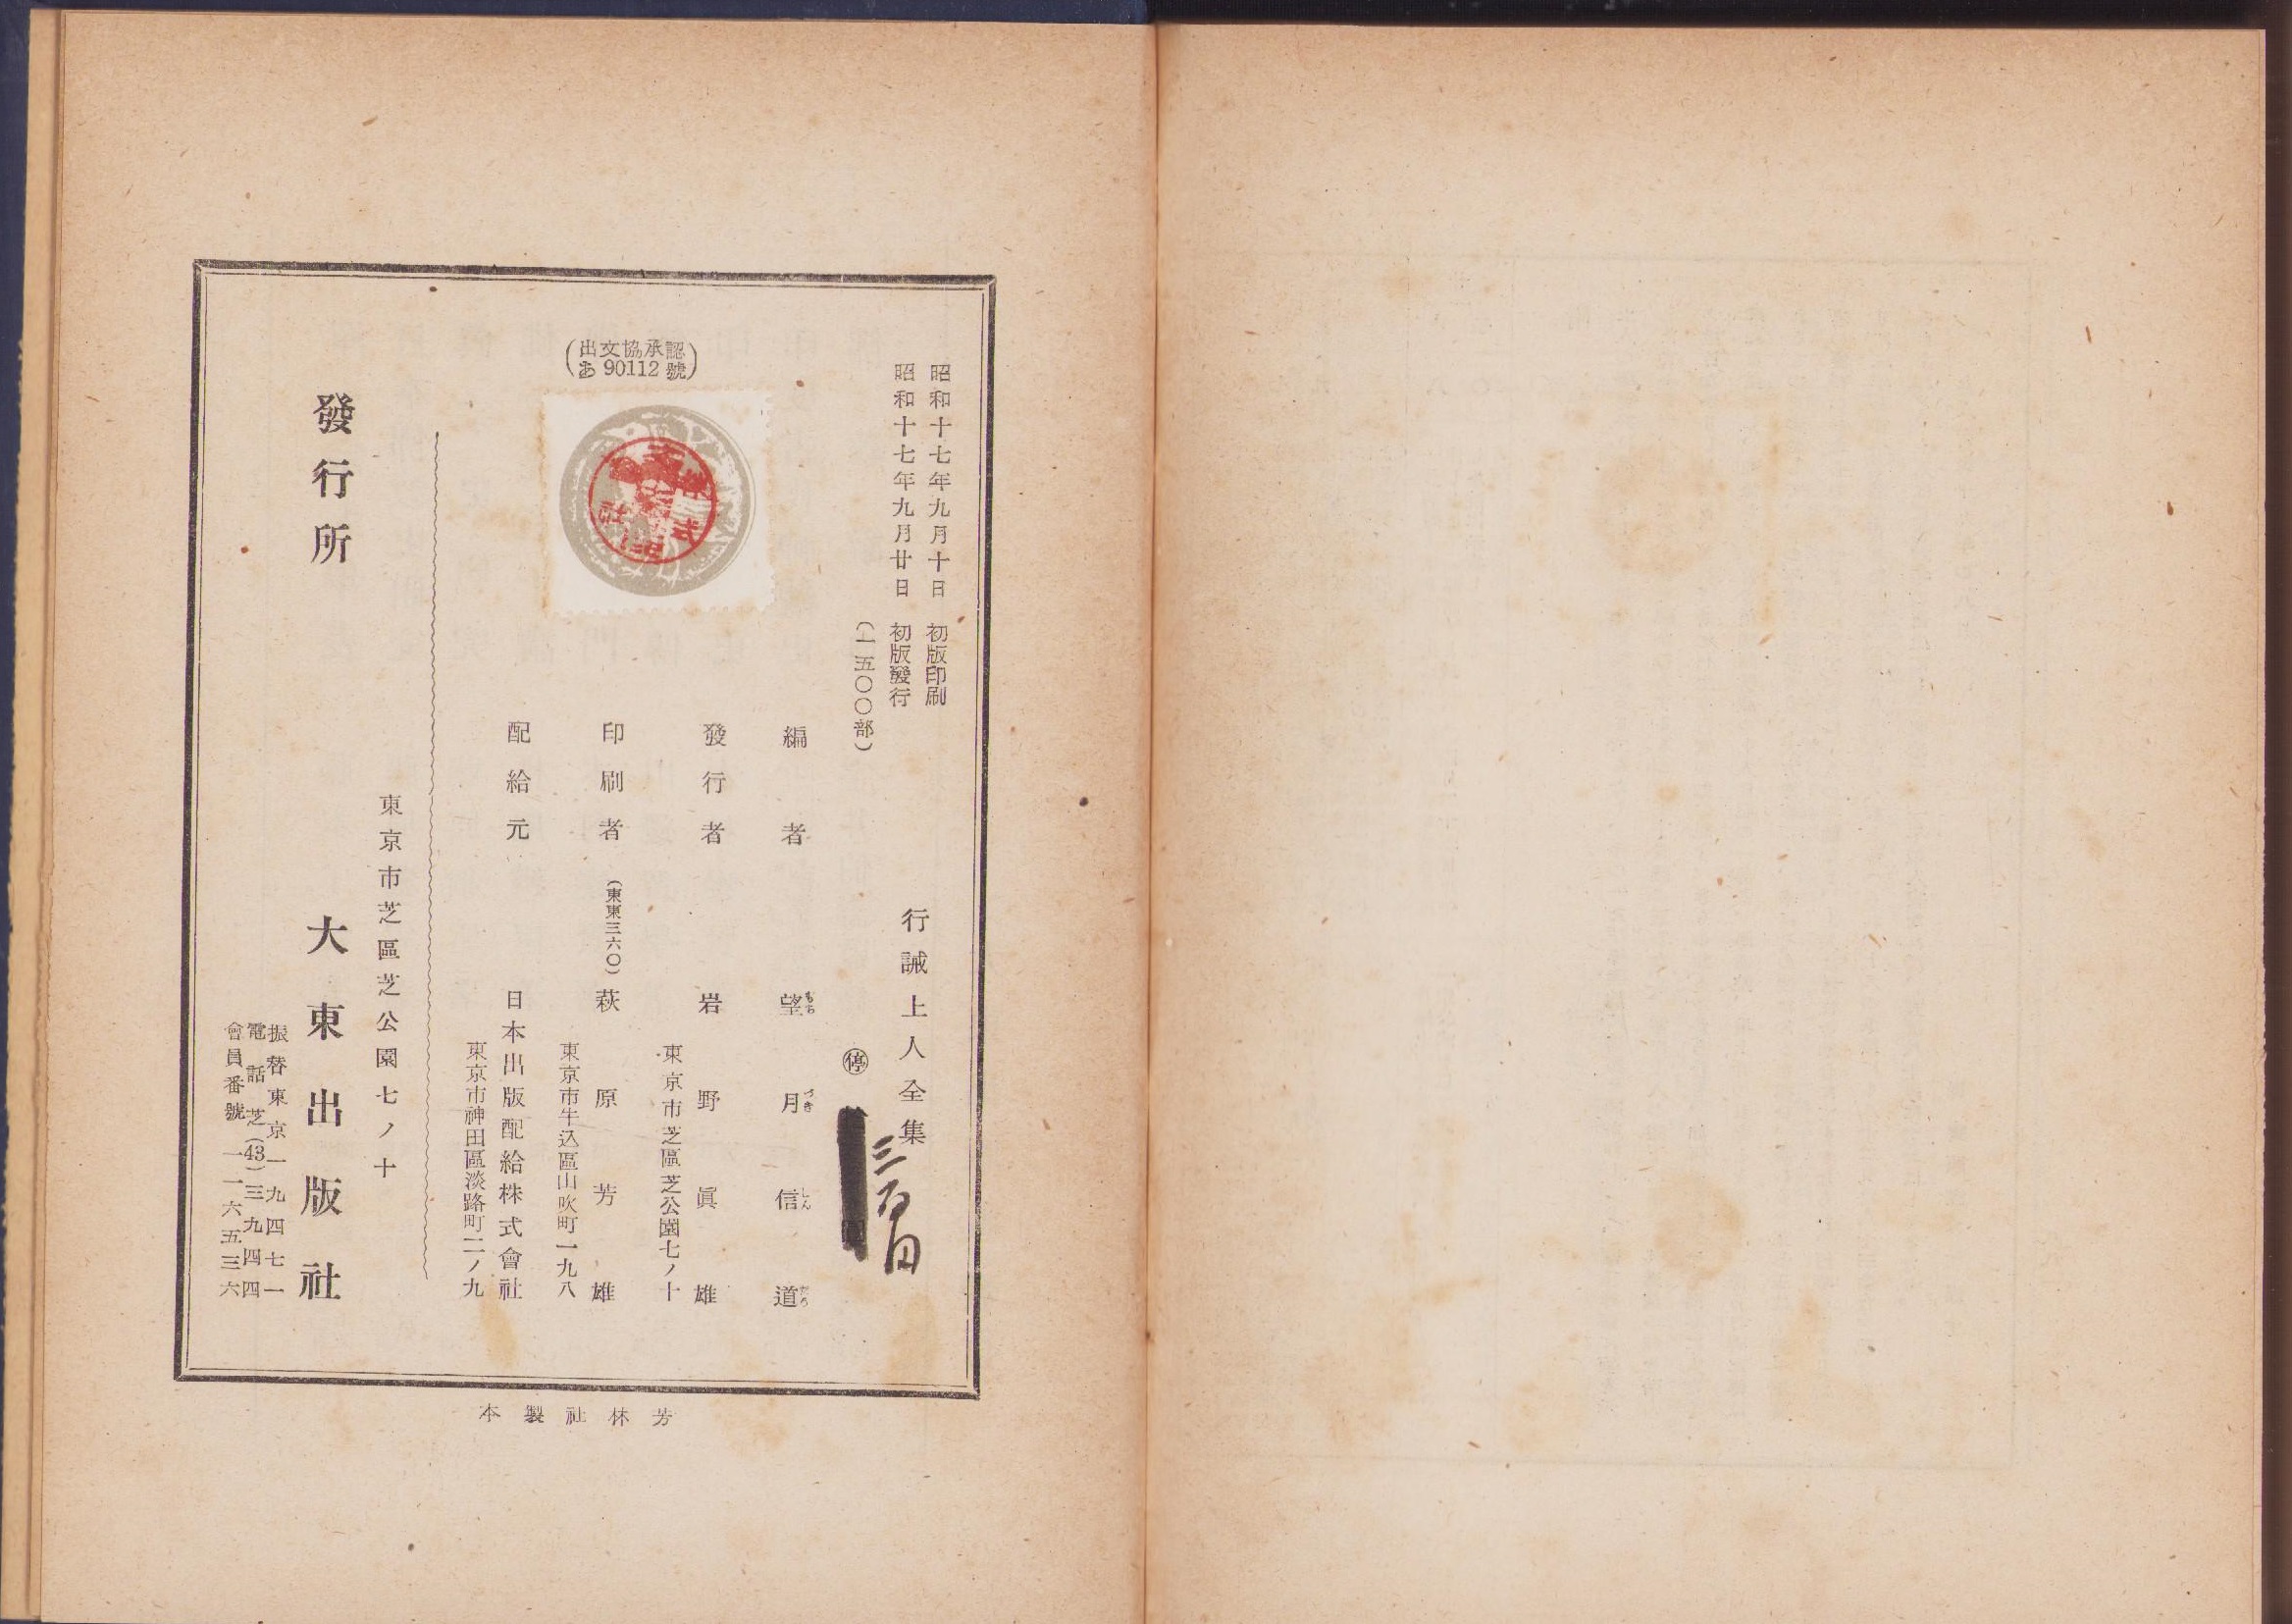 昭和十七年九月十日 初版印刷
昭和十七年九月廿日 初版發行
(一五〇〇部)
行誡上人全集
㊡
三百円
編者 望月信道
もち づき しん だう
發行者 岩野眞雄
東京市芝區芝公園七ノ十
印刷者 (東東三六〇) 萩原芳雄
東京市牛込區山吹町一九八
配給元 日本出版配給株式會社
東京市神田區淡路町二ノ九
(出文協承認
あ 90112 號)
東京市芝區芝公園七ノ十
發行所 大東出版社
振替東京一九四七一
電話芝(43)三九四四
會員番號一一六五三六
芳林社製本